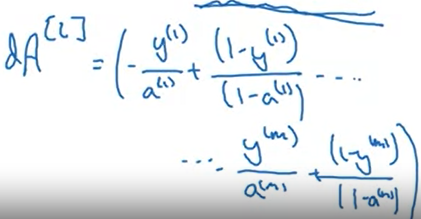 dA^[l] = (- y^(1)/a^(1) + (1-y^(1))/(1-a^(1)) ----
---- y^(m)/a^(m) + (1-y^(m))/(1-a^(m)))